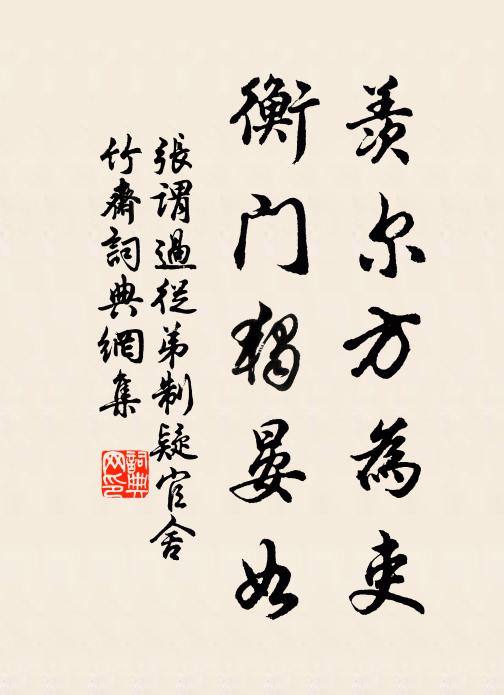 羨尔方為吏
衡门獨晏如
張謂過從弟制疑官舍
竹齋詞典網集
詞典网印